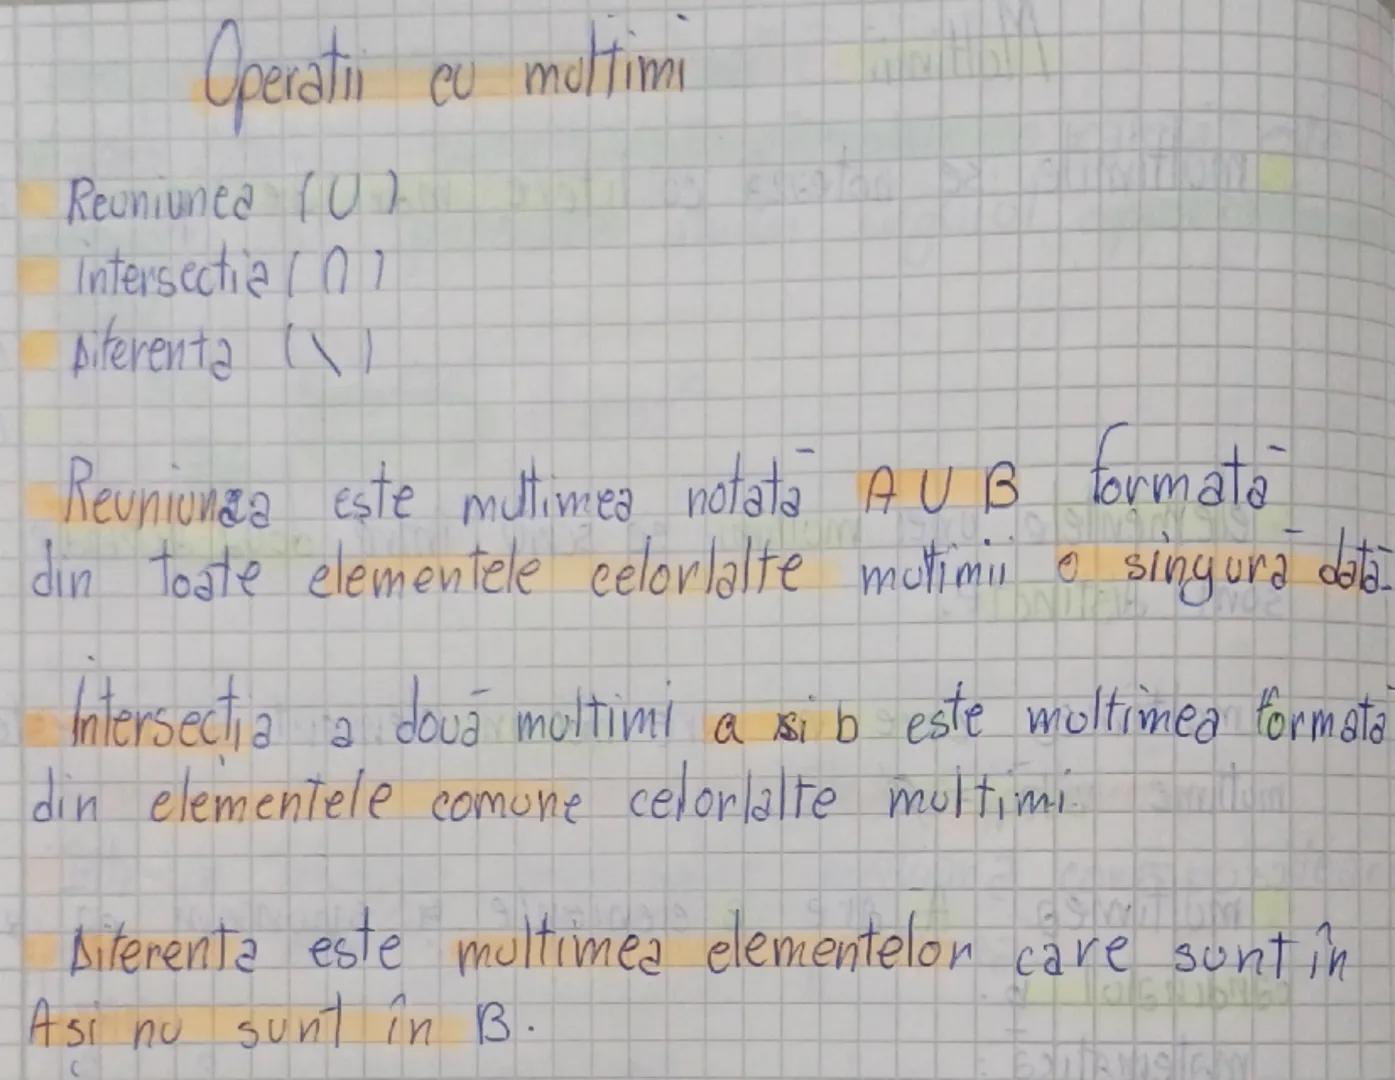 Operatii cu multimi
Reuniunea (U)
Intersectia (∩)
Diferenta (\)
Reuniunea este multimea notată A U B formată
din toate elementele celorlalte mutimii o singură dată.
Intersecția a două multimi a si b este multimea formată
din elementele comune celorlalte multimi.
Diferenta este multimea elementelor care sunt în
A și nu sunt în B.